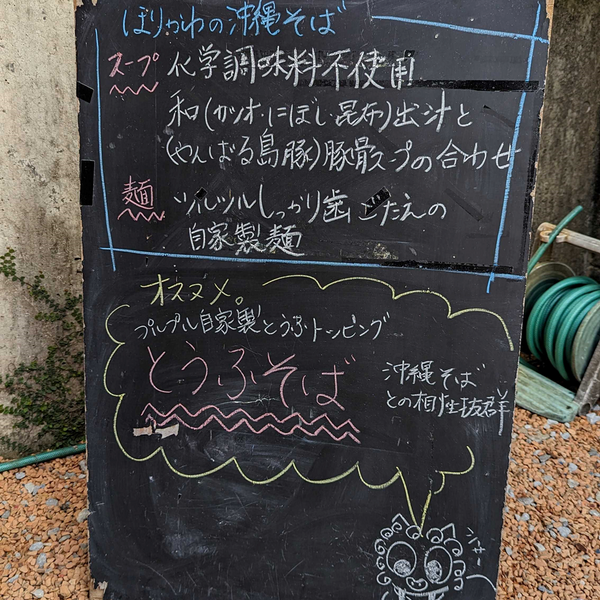 ぼりかわの沖縄そば
スープ 化学調味料不使用
和(カツオ・にぼし・昆布)出汁と
(やんばる島豚)豚骨スープの合わせ
麺 ツルツルしっかり歯ごたえの
自家製麺
オススメ。
プルプル自家製とうふトッピング
とうふそば
沖縄そば
との相性抜群
シャー